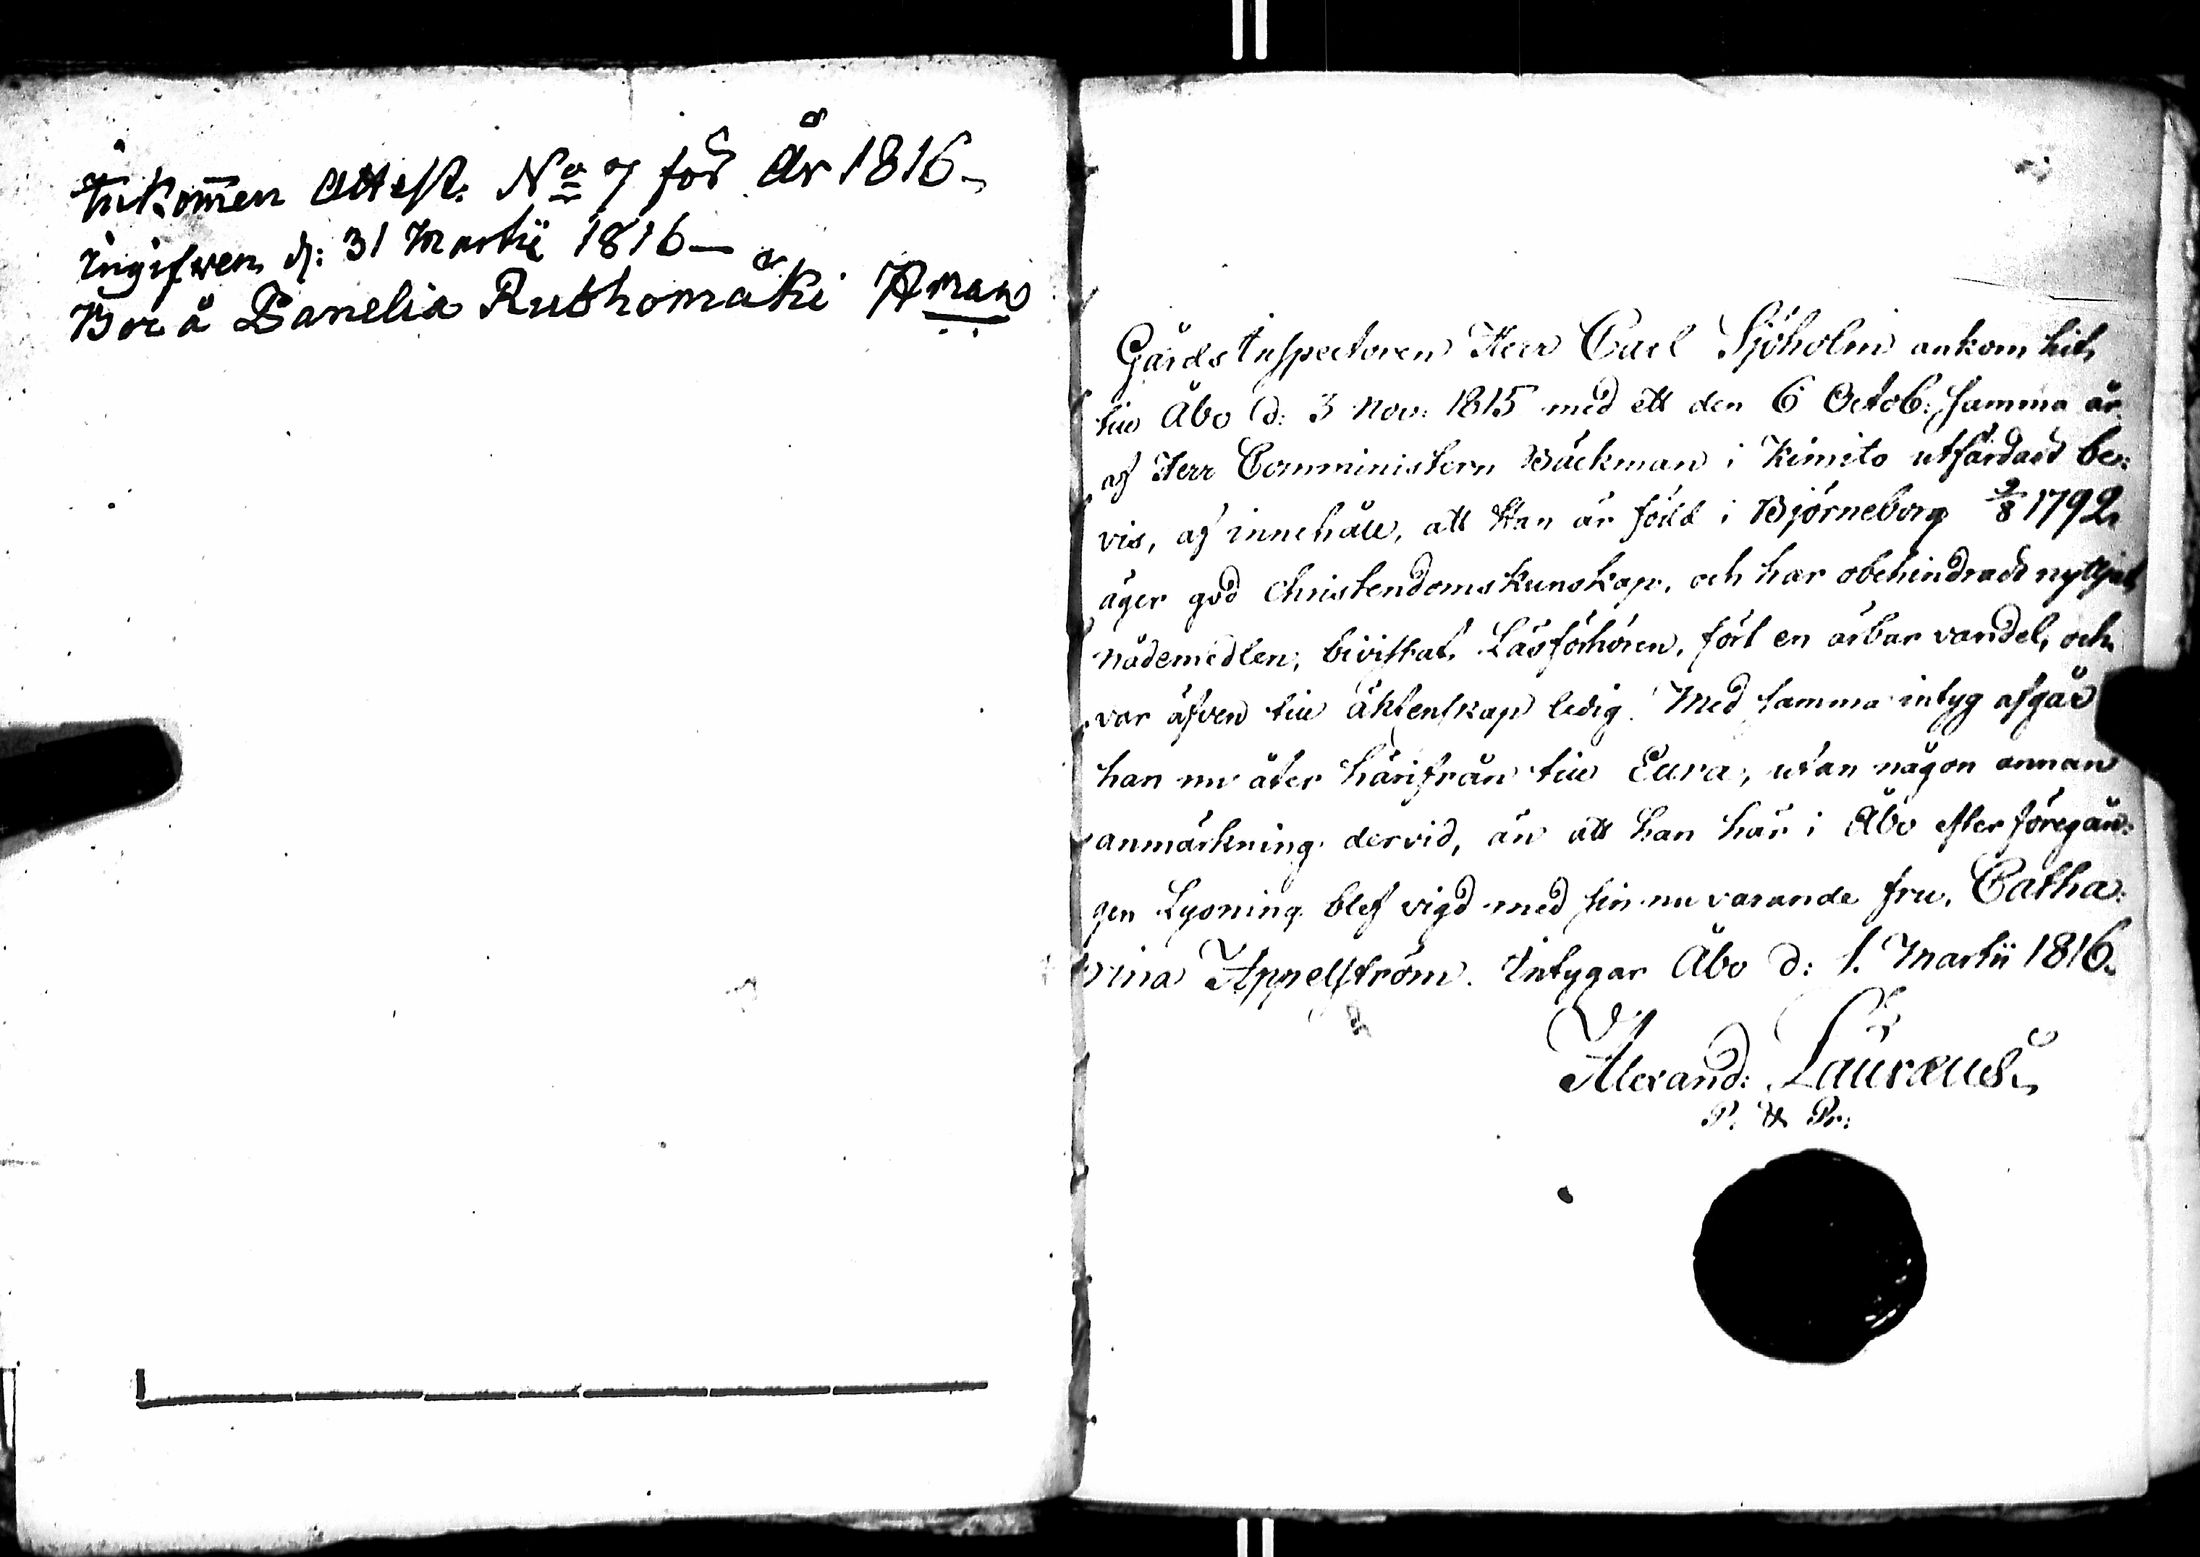 Inkommen Attest. No 7 för År 1816
ingifven d: 31 Martii 1816
Bor å Panelia Ruthomäki
Gårds Inspectoren Herr Carl Sjöholm ankom hit
till Åbo d: 3 Nov: 1815 med ett den 6 Octob: samma år
af Herr Comministern Bäckman i Kimito utfärdadt be-
vis, af innehåll, att Han är född i Björneborg 9/8 1792,
äger god Christendomskunskap, och har obehindradt nyttjat
nådemedlen, bivistat Läsförhören, fört en ärbar vandel, och
var äfven till äktenskap ledig. Med samma intyg afgår
han nu åter härifrån till Eura, utan någon annan
anmärkning dervid, än att han här i Åbo efter föregån-
gen Lysning blef vigd med sin nu varande fru, Catha-
rina Appelström. Intygar Åbo d: 1. Martii 1816.
Alexand: Lauræus
P. & Pr: